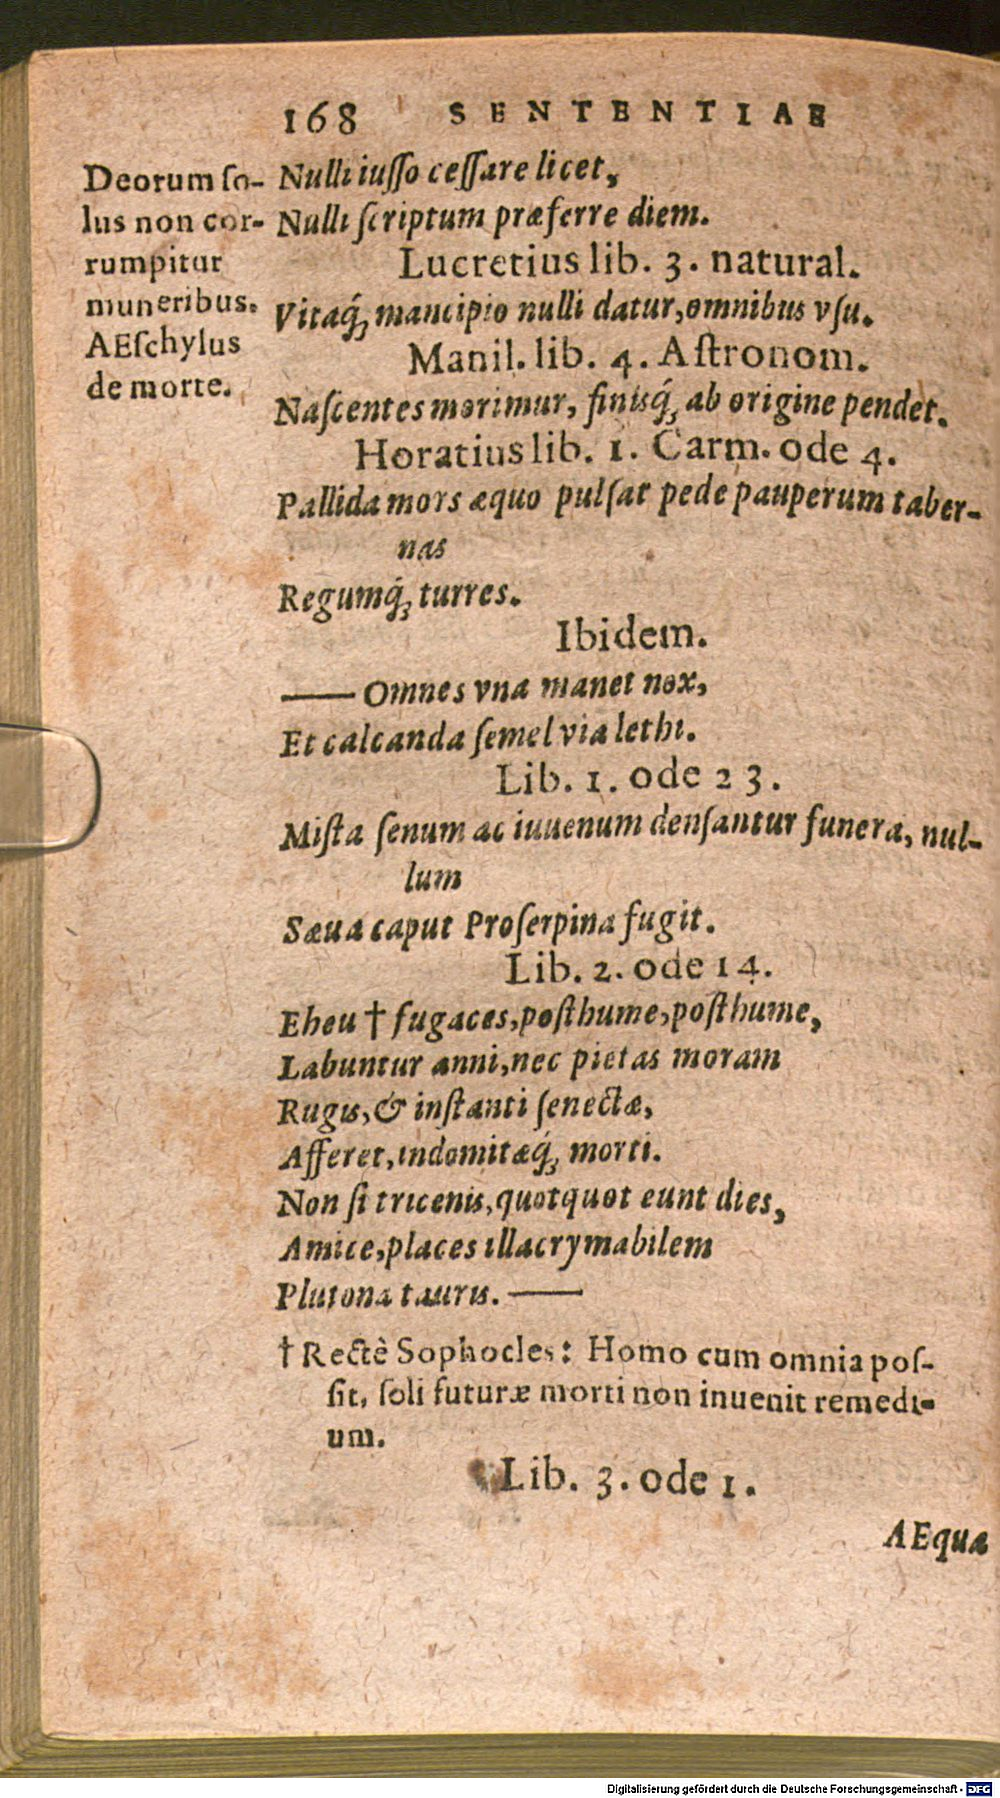 168 SENTENTIAE
Deorum ſo-
lus non cor-
rumpitur
muneribus.
AEſchylus
de morte.
Nulli iuſſo ceſſare licet,
Nulli ſcriptum præferre diem.
Lucretius lib. 3. natural.
Vitaq́ꝫ mancipio nulli datur, omnibus vſu.
Manil. lib. 4. Aſtronom.
Naſcentes morimur, finisq́ꝫ ab origine pendet.
Horatius lib. 1. Carm. ode 4.
Pallida mors æquo pulſat pede pauperum taber-
nas
Regumq́ꝫ turres.
Ibidem.
—— Omnes vna manet nox,
Et calcanda ſemel via lethi.
Lib. 1. ode 23.
Miſta ſenum ac iuuenum denſantur funera, nul-
lum
Sæua caput Proſerpina fugit.
Lib. 2. ode 14.
Eheu † fugaces, poſthume, poſthume,
Labuntur anni, nec pietas moram
Rugis, & inſtanti ſenectæ,
Afferet, indomitæq́ꝫ morti.
Non ſi tricenis, quotquot eunt dies,
Amice, places illacrymabilem
Plutona tauris. ——
† Rectè Sophocles: Homo cum omnia poſ-
ſit, ſoli futuræ morti non inuenit remedi-
um.
Lib. 3. ode 1.
AEqua
Digitalisierung gefördert durch die Deutsche Forschungsgemeinschaft - DFG